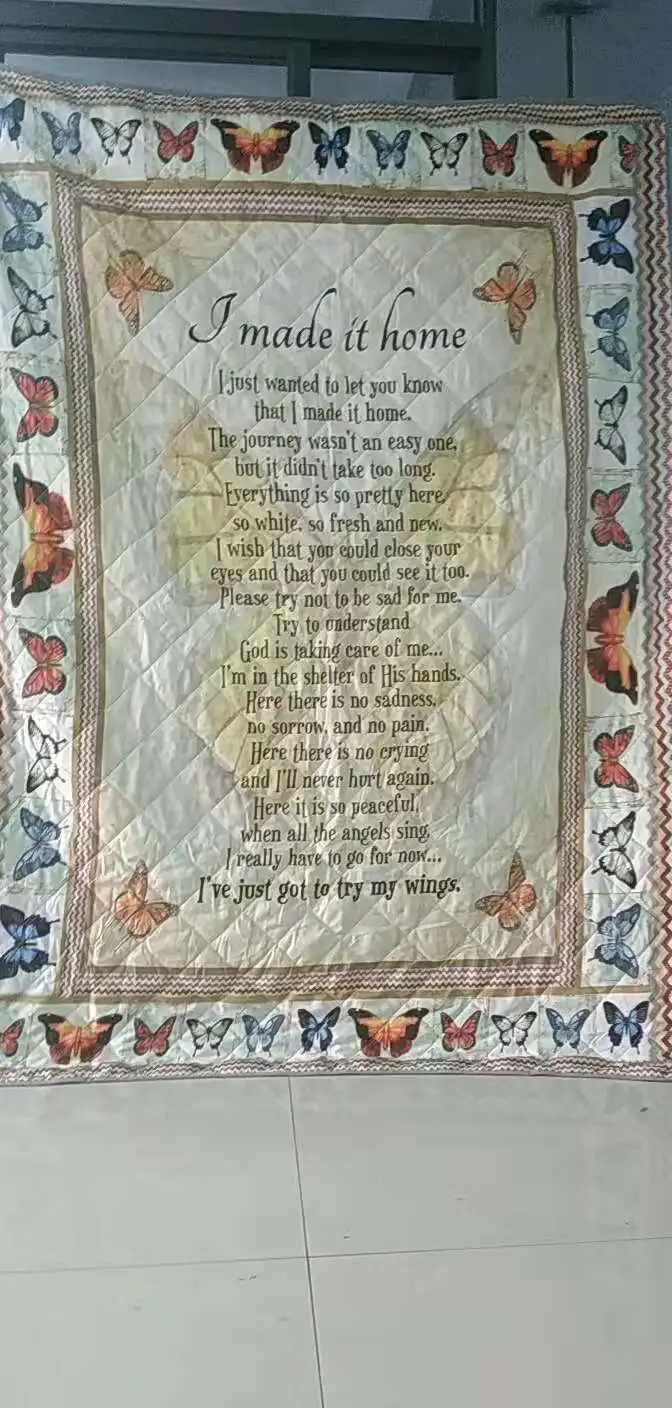 I made it home
I just wanted to let you know
that I made it home.
The journey wasn't an easy one,
but it didn't take too long.
Everything is so pretty here,
so white, so fresh and new.
I wish that you could close your
eyes and that you could see it too.
Please try not to be sad for me.
Try to understand
God is taking care of me...
I'm in the shelter of His hands.
Here there is no sadness,
no sorrow, and no pain.
Here there is no crying
and I'll never hurt again.
Here it is so peaceful,
when all the angels sing,
I really have to go for now...
I've just got to try my wings.